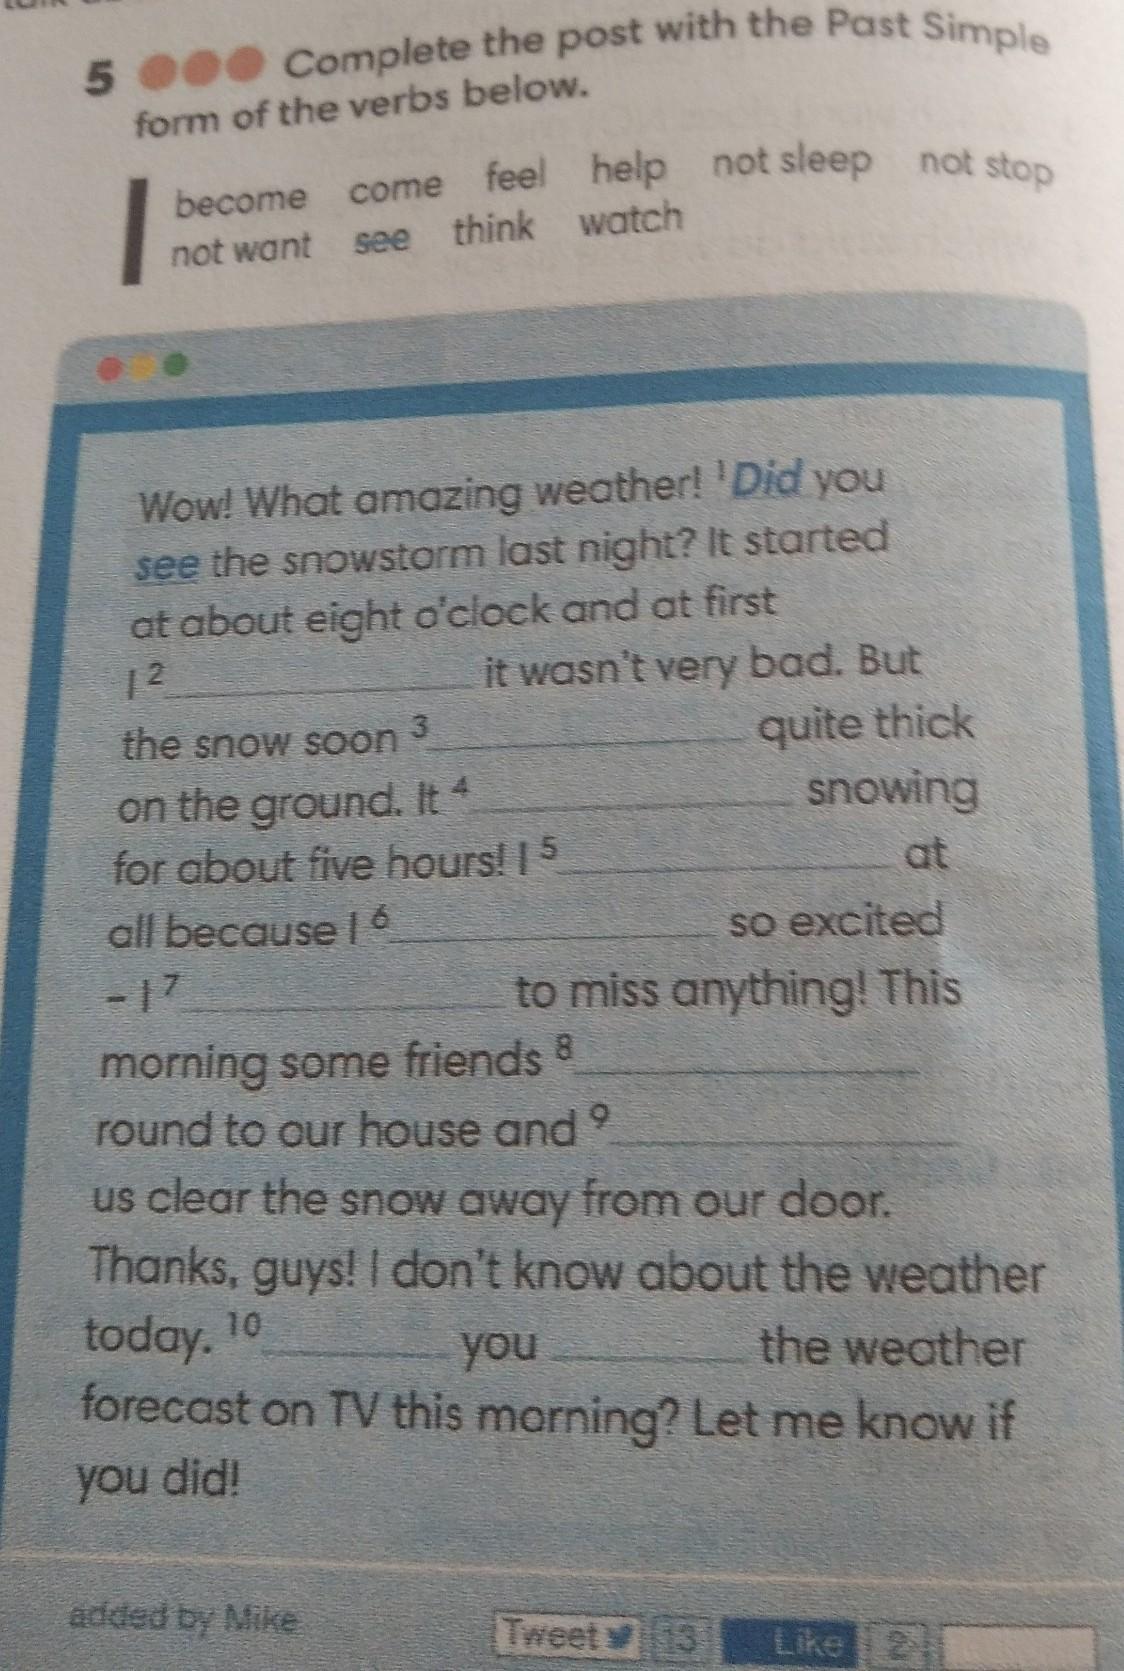 5 Complete the post with the Past Simple
form of the verbs below.
become come feel help not sleep not stop
not want see think watch
Wow! What amazing weather! 1 Did you
see the snowstorm last night? It started
at about eight o'clock and at first
I 2 it wasn't very bad. But
the snow soon 3 quite thick
on the ground. It 4 snowing
for about five hours! I 5 at
all because I 6 so excited
– I 7 to miss anything! This
morning some friends 8
round to our house and 9
us clear the snow away from our door.
Thanks, guys! I don't know about the weather
today. 10 you the weather
forecast on TV this morning? Let me know if
you did!
added by Mike Tweet 13 Like 2